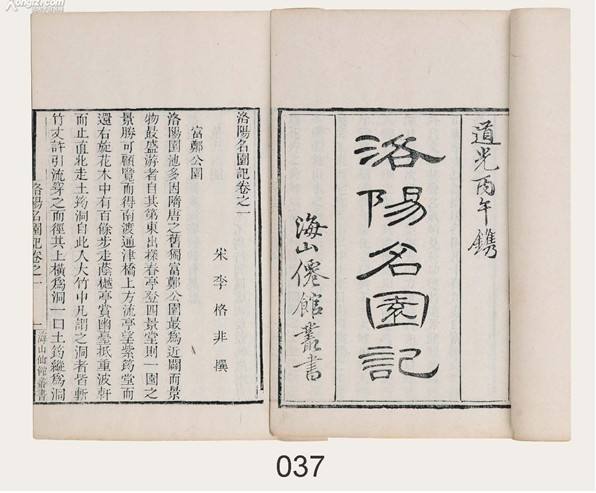 道光丙午鐫
洛陽名園記
海山僊館叢書
洛陽名園記卷之一
宋 李格非 撰
富鄭公園
洛陽園池多因隋唐之舊獨富鄭公園最爲近闢而景
物最盛游者自其第東出探春亭登四景堂則一園之
景勝可顧覽而得南渡通津橋上方流亭望紫筠堂而
還右旋花木中有百餘步走蔭樾亭賞幽臺抵重波軒
而止直北走土筠洞自此入大竹中凡謂之洞者皆斬
竹丈許引流穿之而徑其上橫爲洞一曰土筠縱爲洞
洛陽名園記卷之一 一 海山仙館叢書
037